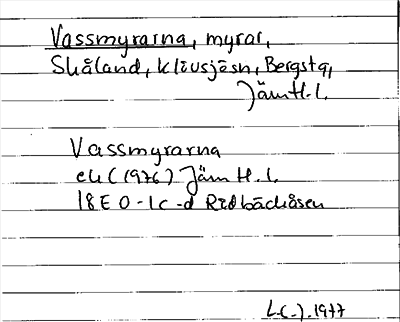 Vassmyrarna, myrar,
Skåland, Klövsjösn, Bergstg,
JämtH.l.
Vassmyrarna
ek (1976) Jämt H.l.
18E 0-1c-d Rödbäckåsen
L(-).1977